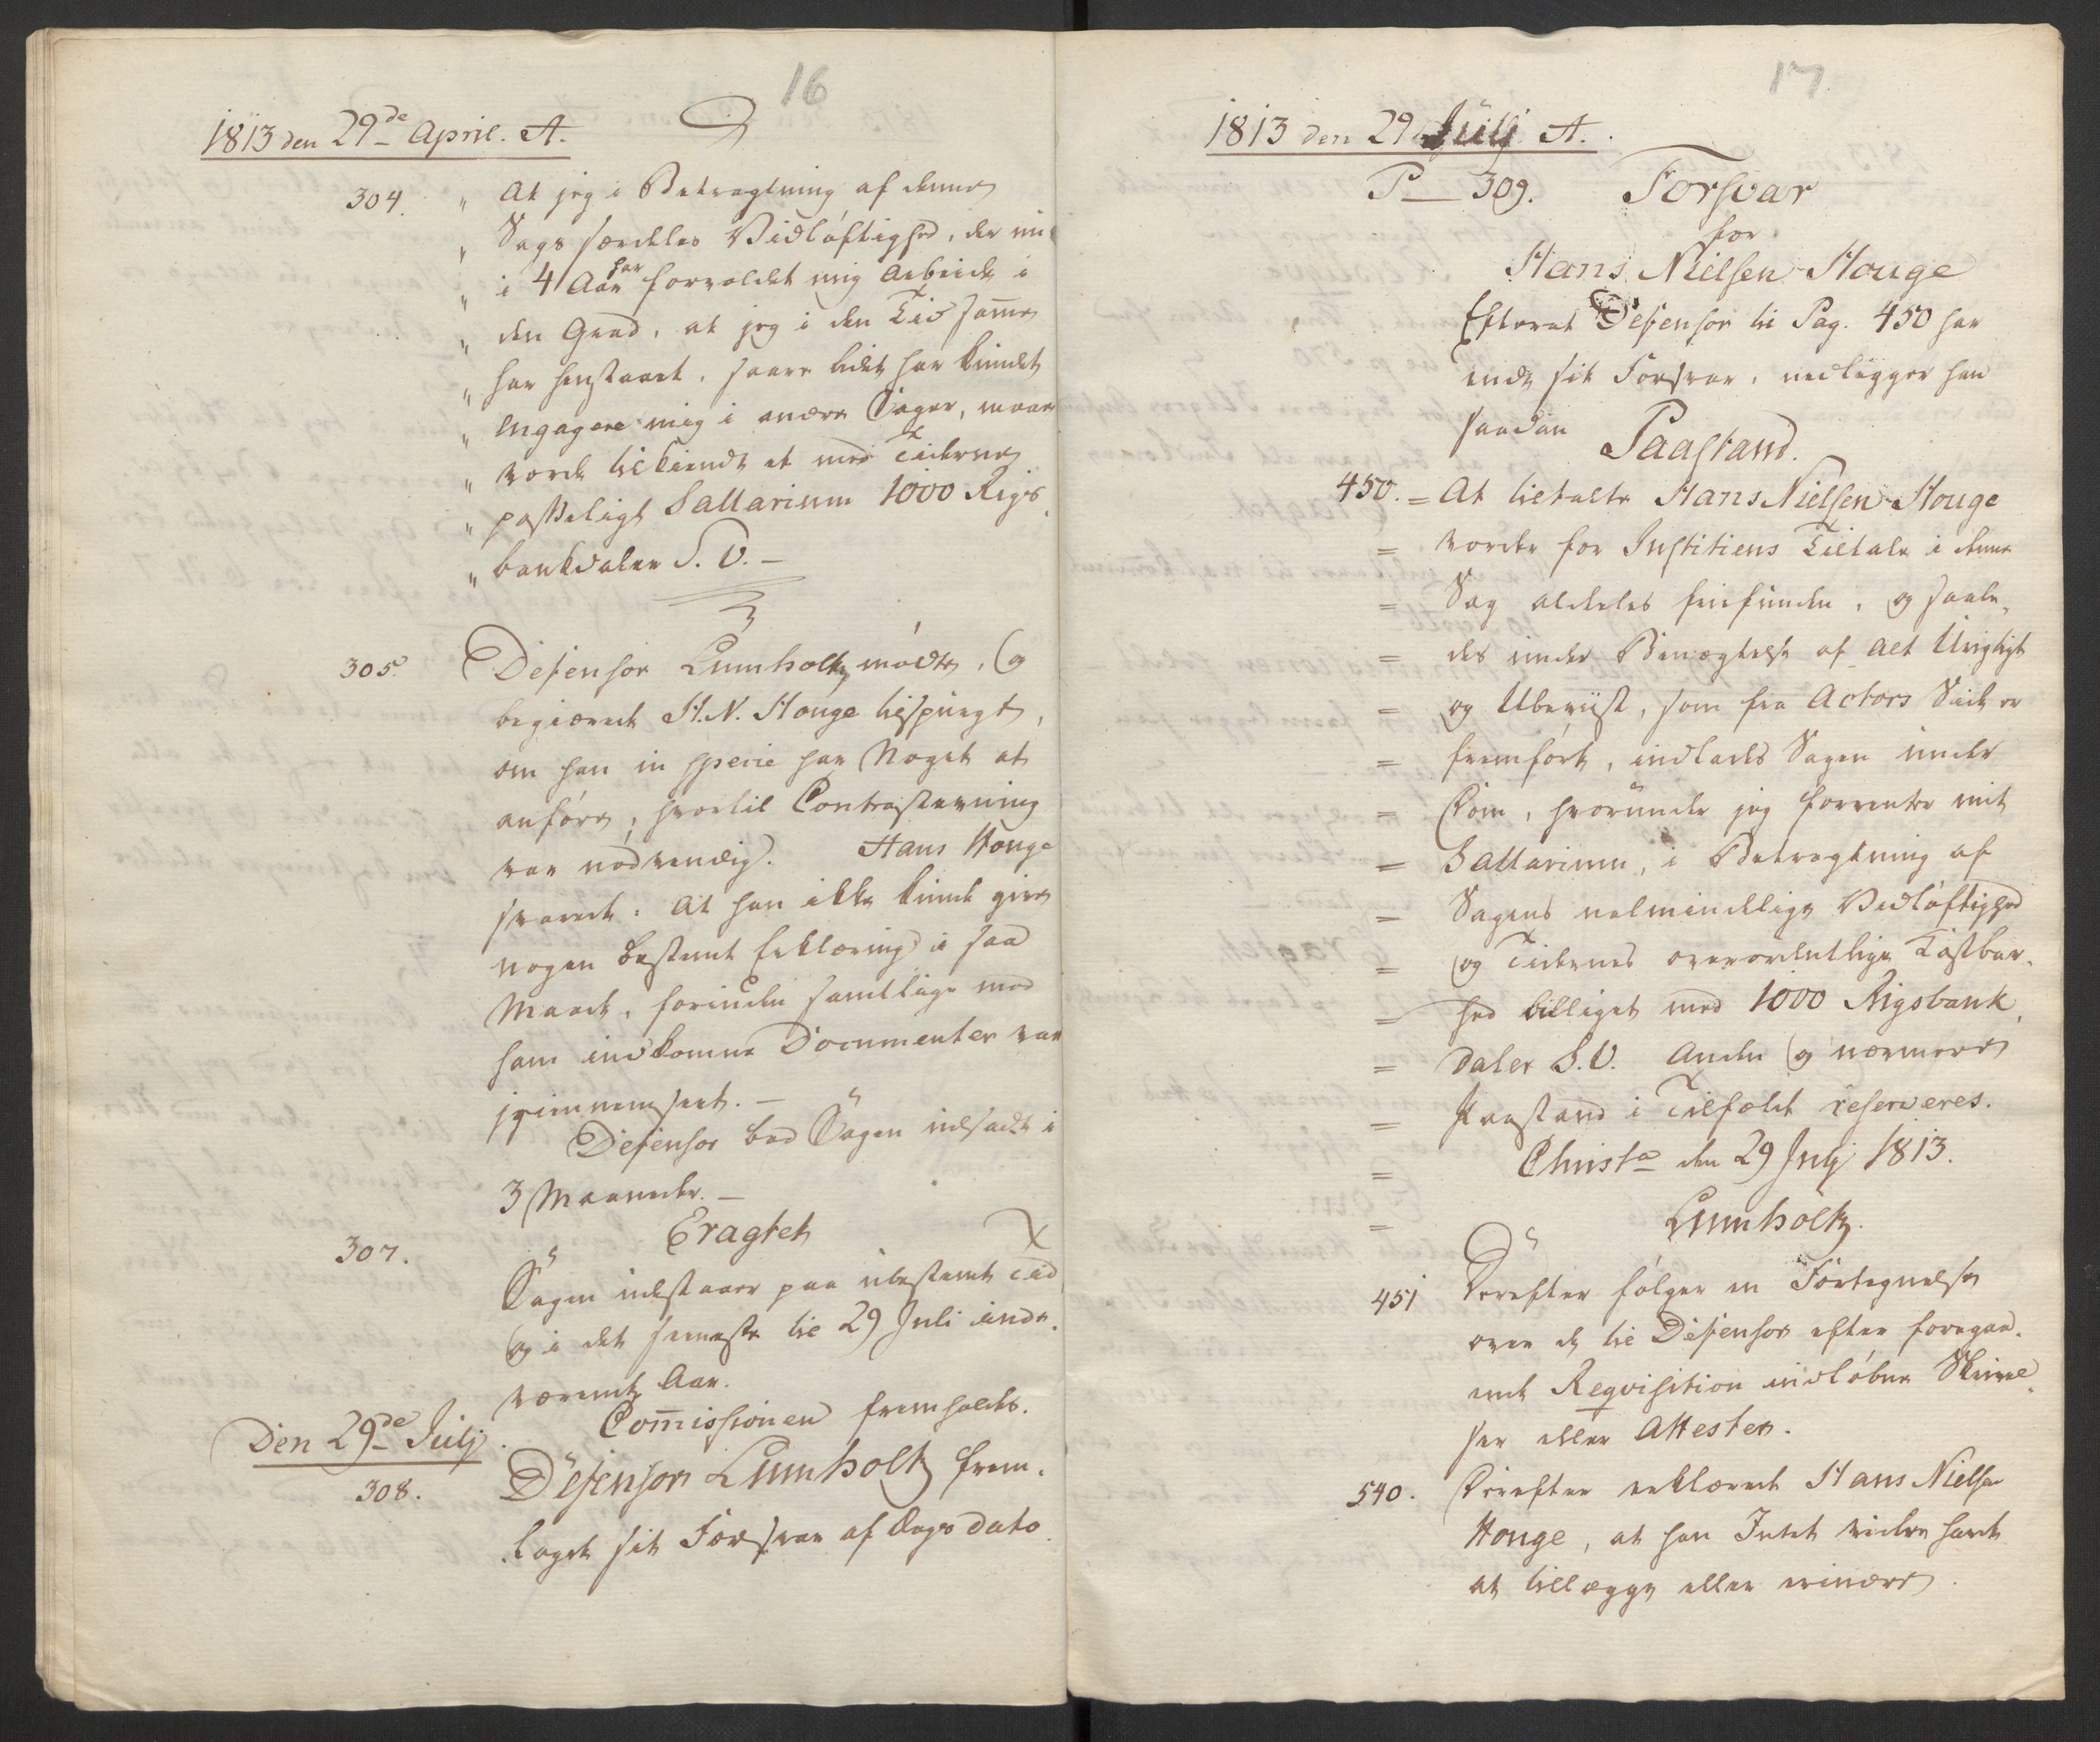 16
1813 den 29de April. A.
304. " At jeg i Betragtning af denne
" Sags særdeles Vidløftighed, der nu
" i 4 Aar har forvoldet mig Arbeide i
" den Grad, at jeg i den Tid samme
" har henstaaet, saare lidet har kundet
" engagere mig i andre Sager, maae
" vorde tilkiendt et med Tiderne
" passeligt Sallarium 1000 Rigs
" bankdaler S. V. –
305. Defensor Lumholtz mødte, og
begiærede H. N. Houge tilspurgt,
om han in specie har Noget at
anføre, hvortil Contrastævning
var nødvendig. Hans Houge
svarede: At han ikke kunde give
nogen bestemt Erklæring i saa
Maade, forinden samtlige med
ham indkomne Documenter var
igiennemseet. –
Defensor bad Sagen udsadt i
3 Maaneder. –
Eragtet
307. Sagen udstaaer paa ubestemt Tid
og i det seeneste til 29 Juli inde-
værende Aar.
Den 29de Julj Com̄issionen fremholdes.
308. Defensor Lumholtz frem-
lagde sit Forsvar af Dags dato
17
1813 den 29 Julj A.
P 309. Forsvar
for
Hans Nielsen Houge
Efterat Defensor til Pag. 450 har
endt sit Forsvar, nedlægger han
saadan Paastand.
450. = At tiltalte Hans Nielsen Houge
= vorder for Justitiens Tiltale i denne
= Sag aldeles friefunden, og saale-
= des under Benægtelse af Alt Urigtigt
= og Ubeviist, som fra Actors Side er
= fremført, indlades Sagen under
= Dom, hvorunder jeg forventer mit
= Sallarium, i Betragtning af
= Sagens ualmindelige Vidløftighed
= og Tidernes overordentlige Kostbar-
= hed billiget med 1000 Rigsbank
= daler S. V. Anden og nærmere
= Paastand i Tilfælde reserveres.
= Christa den 29 Julj 1813.
= Lumholtz.
451 Derefter følger en Fortegnelse
over de til Defensor efter foregaa-
ende Reqvisition indløbne Skrivel-
ser eller Attester.
540. Derefter erklærede Hans Nielsen
Houge, at han Intet videre havde
at tillægge eller erindre.